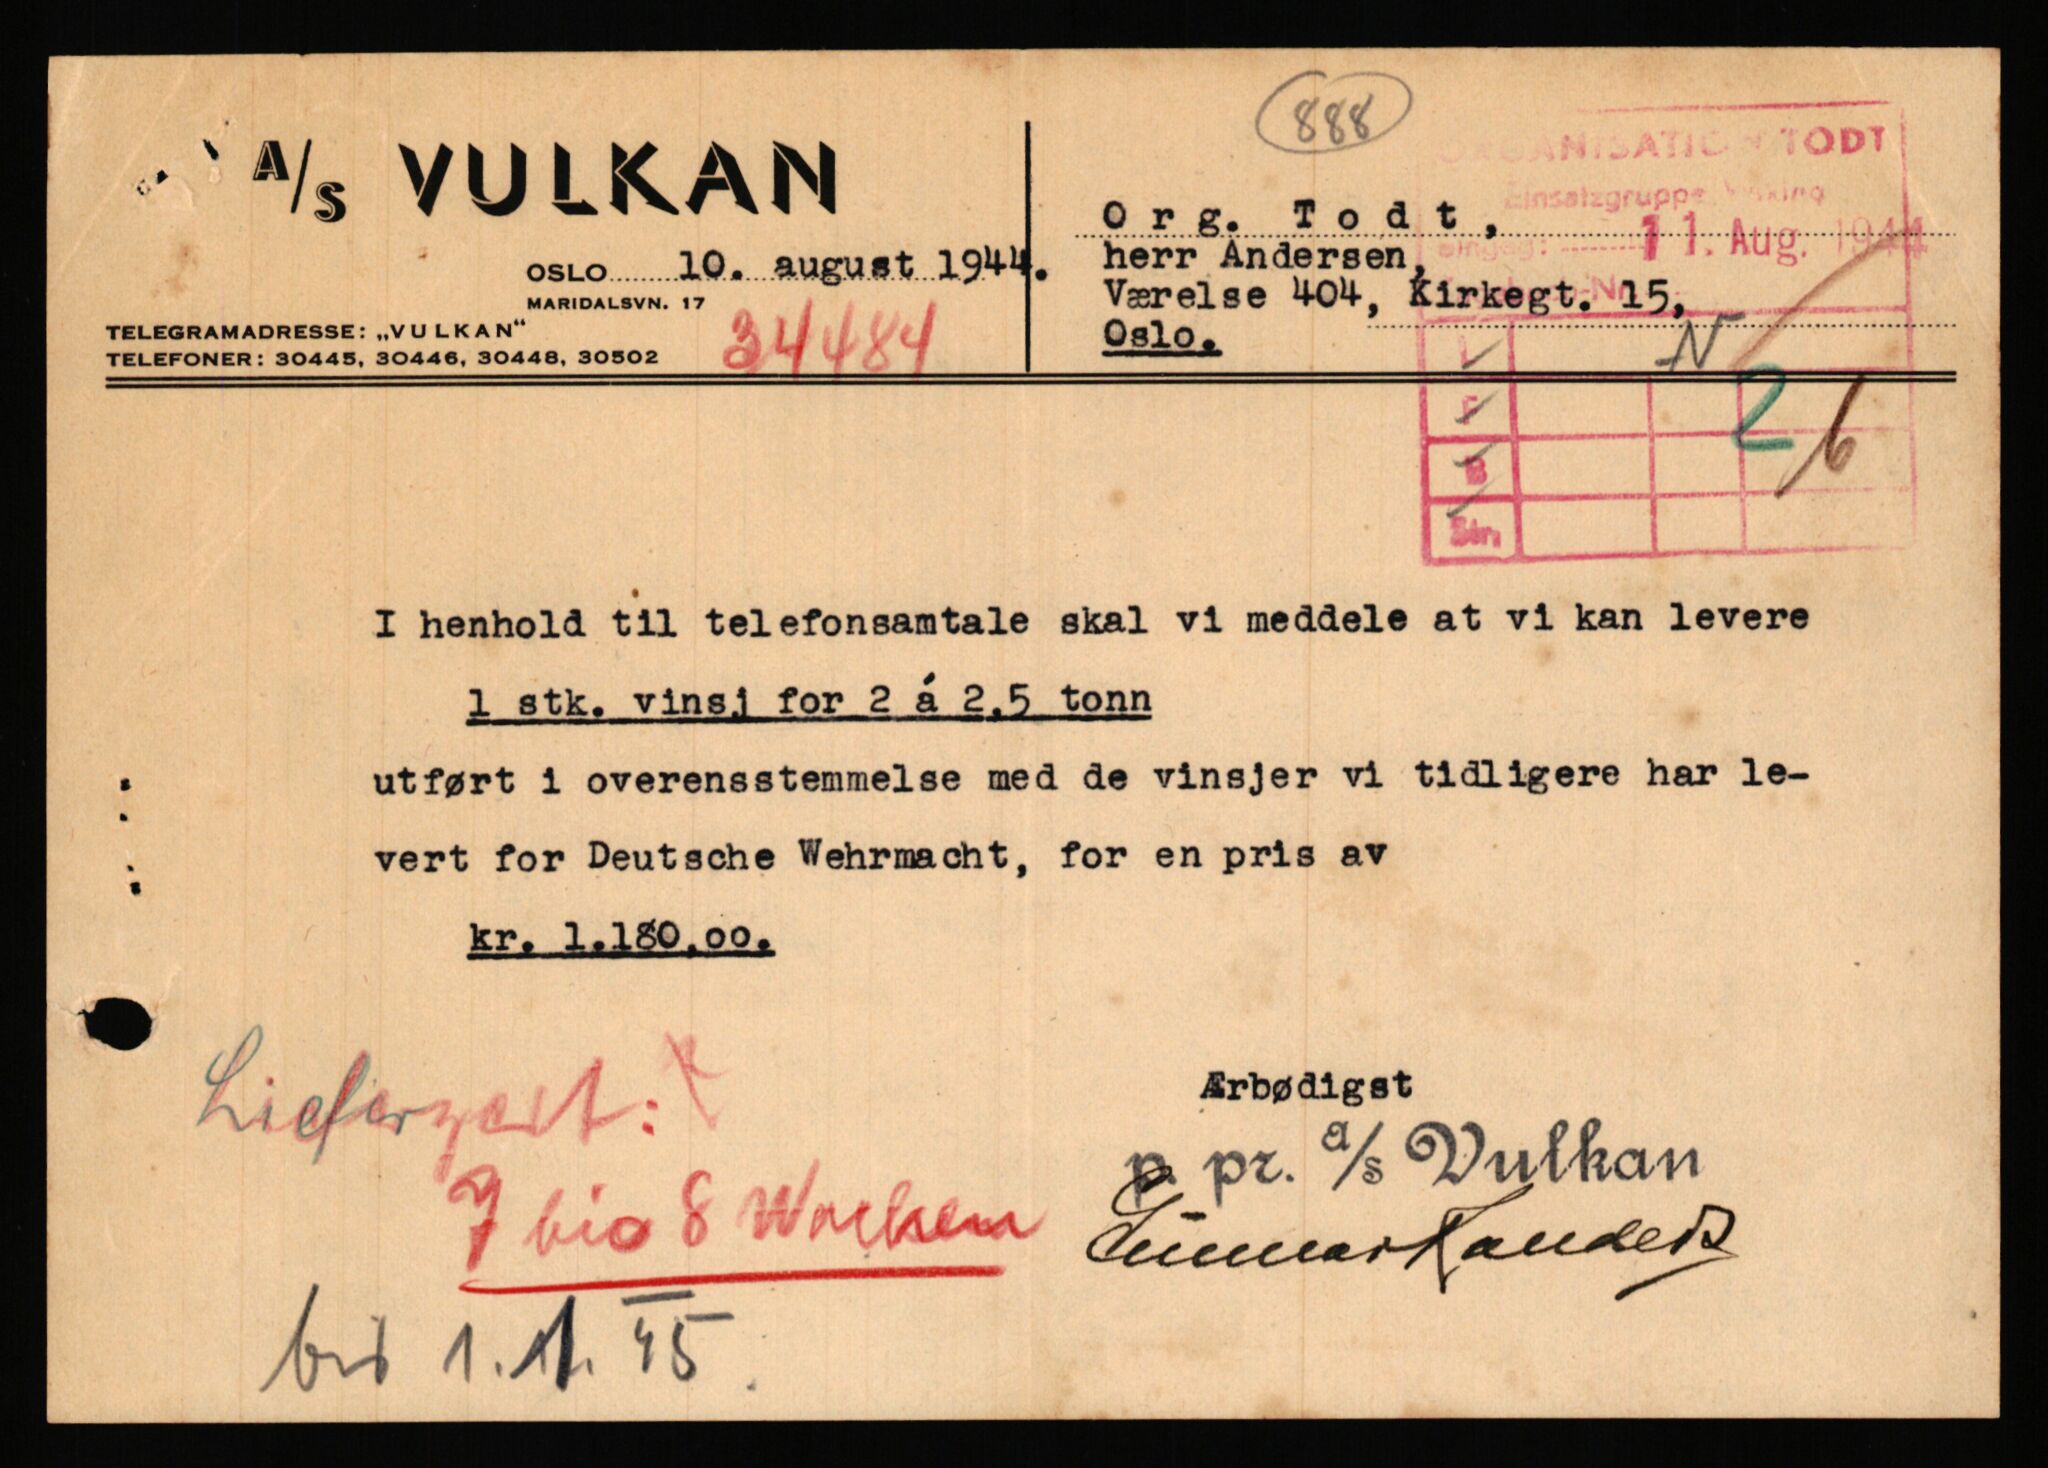 888
A/S VULKAN
OSLO 10. august 1944.
MARIDALSVN. 17
TELEGRAMADRESSE: „VULKAN“
TELEFONER: 30445, 30446, 30448, 30502
34484
ORGANISATION TODT
Einsatzgruppe Wiking
eingeg: 11. Aug. 1944
Org. Todt,
herr Andersen,
Værelse 404, Kirkegt. 15,
Oslo.
N
2
6
B
I henhold til telefonsamtale skal vi meddele at vi kan levere
1 stk. vinsj for 2 á 2,5 tonn
utført i overensstemmelse med de vinsjer vi tidligere har le-
vert for Deutsche Wehrmacht, for en pris av
kr. 1.180,oo.
Lieferzeit:
7 bis 8 Wochen
bis 1.11. 45.
Ærbødigst
p. pr. a/s Vulkan
Gunnar